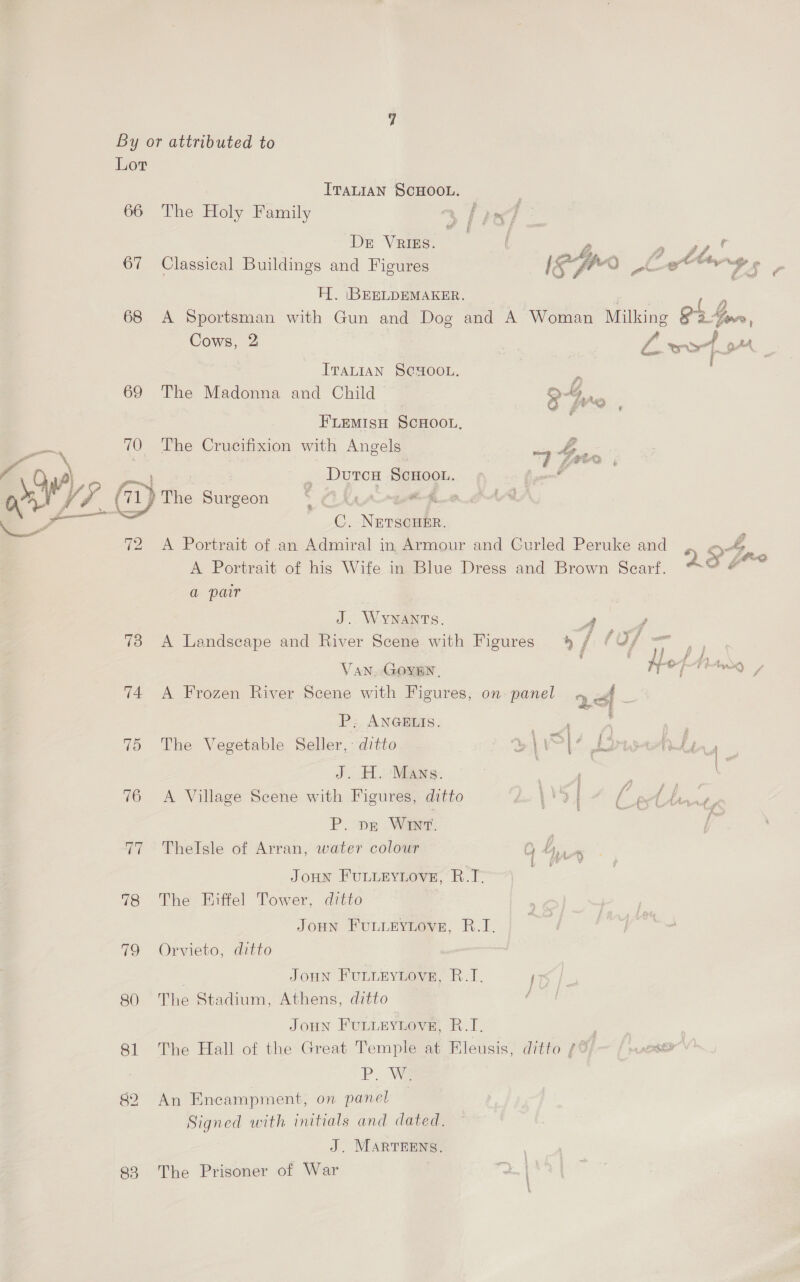 7
By or attributed to
Lot
ITALIAN SCHOOL.
66 The Holy Family
DE VRIES.
67 Classical Buildings and Figures
H. BEELDEMAKER.
68 A Sportsman with Gun and Dog and A Woman Milking
Cows, 2
ITALIAN SCHOOL.
69 The Madonna and Child
FLEMISH SCHOOL.
70 The Crucifixion with Angels
DUTCH SCHOOL.
71 The Surgeon
C. NETSCHER.
72 A Portrait of an Admiral in Armour and Curled Peruke and
A Portrait of his Wife in Blue Dress and Brown Scarf.
a pair
J. WYNANTS.
73 A Landscape and River Scene with Figures
VAN GOYEN.
74 A Frozen River Scene with Figures, on panel
P. ANGELIS.
75 The Vegetable Seller, ditto
J. H. MANS.
76 A Village Scene with Figures, ditto
P. DE WINT.
77 TheIsle of Arran, water colour
JOHN FULLEYLOVE, R.I.
78 The Eiffel Tower, ditto
JOHN FULLEYLOVE, R.I.
79 Orvieto, ditto
JOHN FULLEYLOVE, R.I.
80 The Stadium, Athens, ditto
JOHN FULLEYLOVE, R.I.
81 The Hall of the Great Temple at Eleusis, ditto
P. W.
82 An Encampment, on panel
Signed with initials and dated.
J. MARTEENS.
83 The Prisoner of War